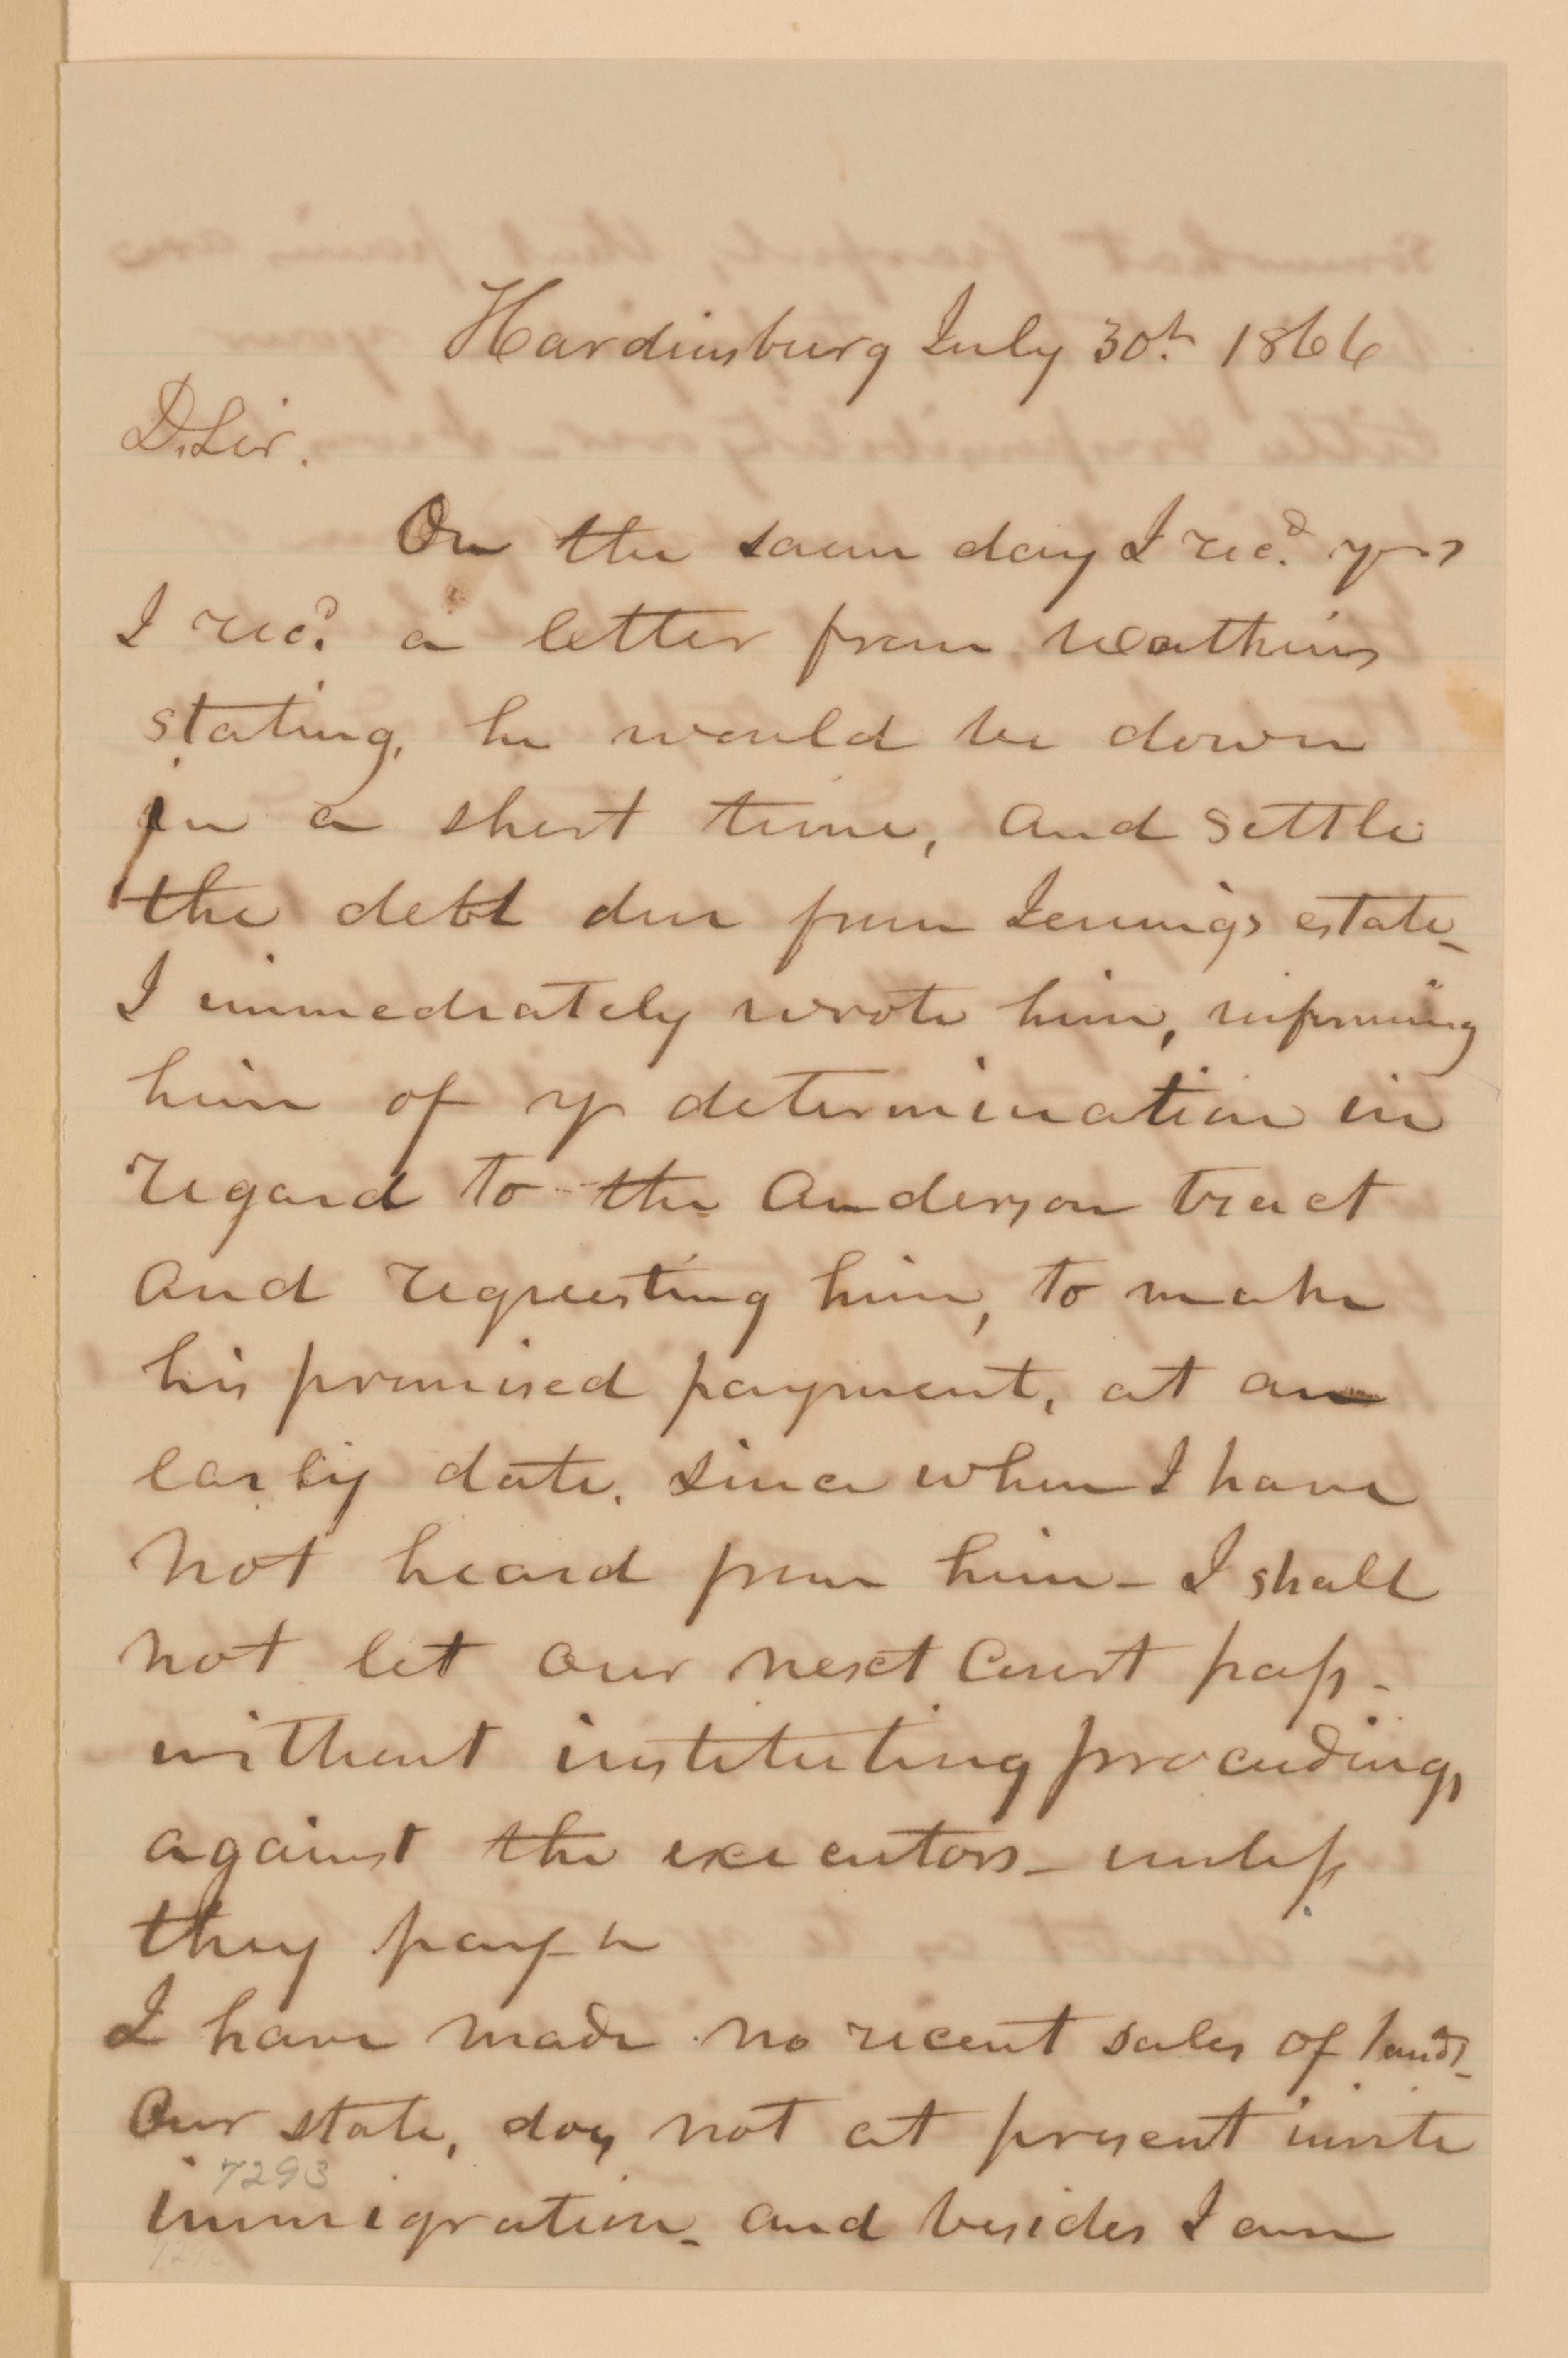 Hardinsburg July 30th 1866
D. Sir.
On the same day I recd. yrs
I recd. a letter from Wathins
stating, he would be down
in a short time, and settle
the debt due from Jennings estate_
I immediately wrote him, informing
him of yr determination in
regard to the Anderson tract
and requesting him, to make
his promised payment, at an
early date. Since when I have
not heard from him - I shall
not let our next Court pass -
without instituting proceedings
against the executors - unless
they pay
I have made no recent sales of lands -
Our state, does not at present invite
7293
immigration - and besides I am